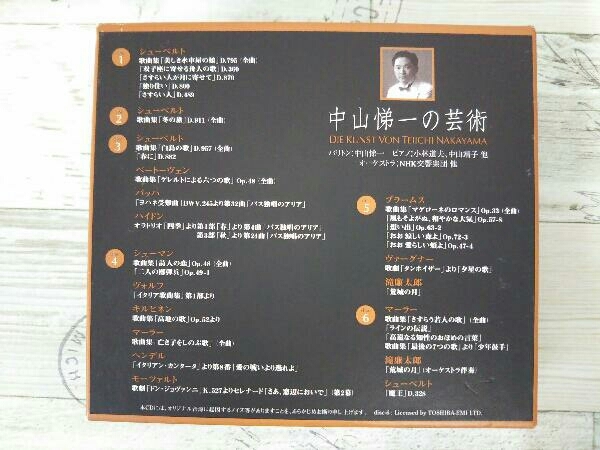 1
シューベルト
歌曲集「美しき水車屋の娘」D.795 (全曲)
「双子座に寄せる舟人の歌」D.360
「さすらい人が月に寄せて」D.870
「独り住い」D.800
「さすらい人」D.489
2
シューベルト
歌曲集「冬の旅」D.911 (全曲)
3
シューベルト
歌曲集「白鳥の歌」D.957 (全曲)
「春に」D.882
ベートーヴェン
歌曲集「ゲレルトによる六つの歌」Op.48 (全曲)
バッハ
「ヨハネ受難曲」BWV.245より第32曲「バス独唱のアリア」
ハイドン
オラトリオ「四季」より第1部「春」より第4曲「バス独唱のアリア」
第3部「秋」より第21曲「バス独唱のアリア」
4
シューマン
歌曲集「詩人の恋」Op.48 (全曲)
「二人の擲弾兵」Op.49-1
ヴォルフ
「イタリア歌曲集」第1部より
キルピネン
歌曲集「高地の歌」Op.52より
マーラー
歌曲集「亡き子をしのぶ歌」(全曲)
ヘンデル
「イタリアン・カンタータ」より第8番「愛の戦いより逃れよ」
モーツァルト
歌劇「ドン・ジョヴァンニ」K.527よりセレナード「さあ、窓辺においで」(第2幕)
中山悌一の芸術
DIE KUNST VON TEIICHI NAKAYAMA
バリトン:中山悌一 ピアノ:小林道夫、中山靖子 他
オーケストラ:NHK交響楽団 他
5
ブラームス
歌曲集「マゲローネのロマンス」Op.33 (全曲)
「風もそよがぬ、和やかな大気」Op.57-8
「想い出」Op.63-2
「おお 涼しい森よ」Op.72-3
「おお 愛らしい頬よ」Op.47-4
ヴァーグナー
歌劇「タンホイザー」より「夕星の歌」
滝廉太郎
「荒城の月」
6
マーラー
歌曲集「さすらう若人の歌」(全曲)
「ラインの伝説」
「高遠なる知性のおほめの言葉」
歌曲集「最後の7つの歌」より「少年鼓手」
滝廉太郎
「荒城の月」(オーケストラ伴奏)
シューベルト
「魔王」D.328
本CDには、オリジナル音源に起因するノイズ等がありますことを、あらかじめお断り申し上げます。 disc-6: Licensed by TOSHIBA-EMI LTD.